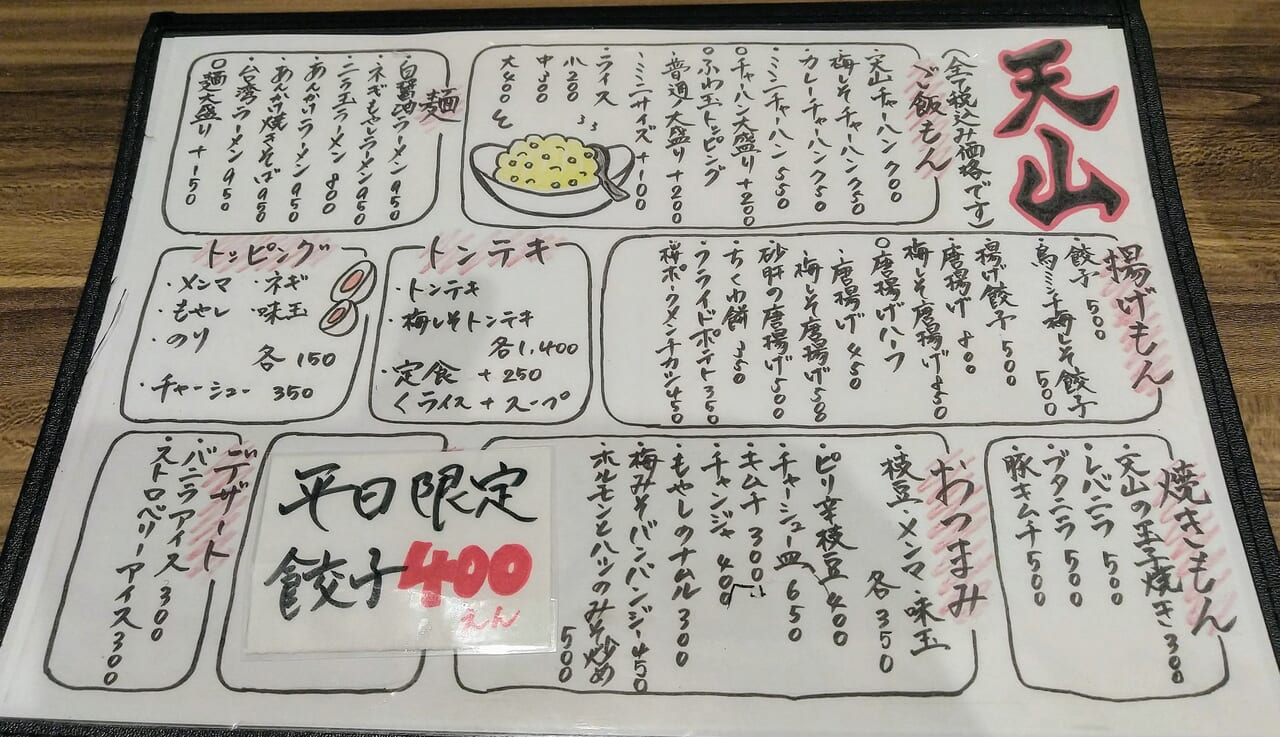 天山
(全て税込み価格です)
ご飯もん
・天山チャーハン 700
・梅しそチャーハン 750
・カレーチャーハン 750
・ミニチャーハン 550
○チャーハン大盛り +200
○ふわ玉トッピング
普通・大盛り +200
ミニサイズ +100
・ライス
小200
中300
大400
麺
・白醤油ラーメン 950
・ネギもやしラーメン 950
・ニラ玉ラーメン 800
・あんかけラーメン 950
・あんかけ焼きそば 950
・台湾ラーメン 950
○麺大盛り +150
揚げもん
・餃子 500
・鳥ミンチ梅しそ餃子 500
・揚げ餃子 500
・唐揚げ 800
・梅しそ唐揚げ 850
○唐揚げハーフ
・唐揚げ 450
・梅しそ唐揚げ 500
・砂肝の唐揚げ 500
・ちくわ餅 350
・フライドポテト 350
・桜ポークメンチカツ 450
トンテキ
・トンテキ
・梅しそトンテキ
各1,400
・定食 +250
くライス+スープ
トッピング
・メンマ ・ネギ
・もやし ・味玉
・のり
各150
・チャーシュー 350
焼きもん
・天山の玉子焼き 300
・レバニラ 500
・ブタニラ 500
・豚キムチ 500
おつまみ
枝豆・メンマ・味玉
各350
・ピリ辛枝豆 400
・チャーシュー皿 650
・キムチ 300
・チャンジャ 400
・もやしのナムル 300
・梅みそバンバンジー 450
・ホルモンとハツのみそ炒め
500
平日限定
餃子400
えん
デザート
・バニラアイス 300
・ストロベリーアイス 300